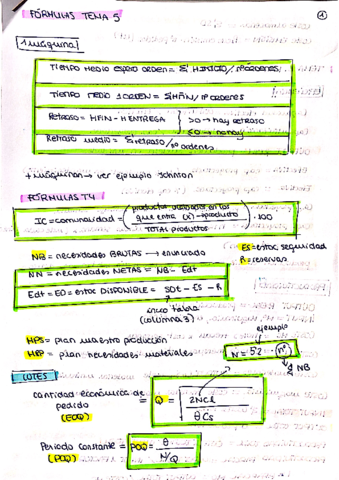 FÓRMULAS TEMA 5
1
1 máquina
TIEMPO MEDIO ESPERA ORDEN = Σ H.INICIO / Nº ÓRDENES
TIEMPO MEDIO 1 ORDEN = Σ HFIN / Nº ORDENES
RETRASO = HFIN - HENTREGA
>0 → hay retraso
≤0 → no hay
Retraso medio = Σ RETRASO / Nº ordenes
+ máquinas → ver ejemplo Johnson
FÓRMULAS T4
IC = comunalidad = ( productos usados en los que entra (x) - producto / TOTAL productos ) · 100
NB = necesidades BRUTAS → enunciado
ES = estoc seguridad
R = reservas
NN = necesidades NETAS = NB - Edt
Edt = ED = estoc DISPONIBLE = SDt - ES - R
(columna 3)
ejemplo
MPS = plan maestro producción
MRP = plan necesidades materiales
N = 52 · nº
NB
LOTES
cantidad económica de pedido = Q = √ 2NCl / θCs
(EOQ)
Periodo constante = POQ = θ / N/Q
(POQ)